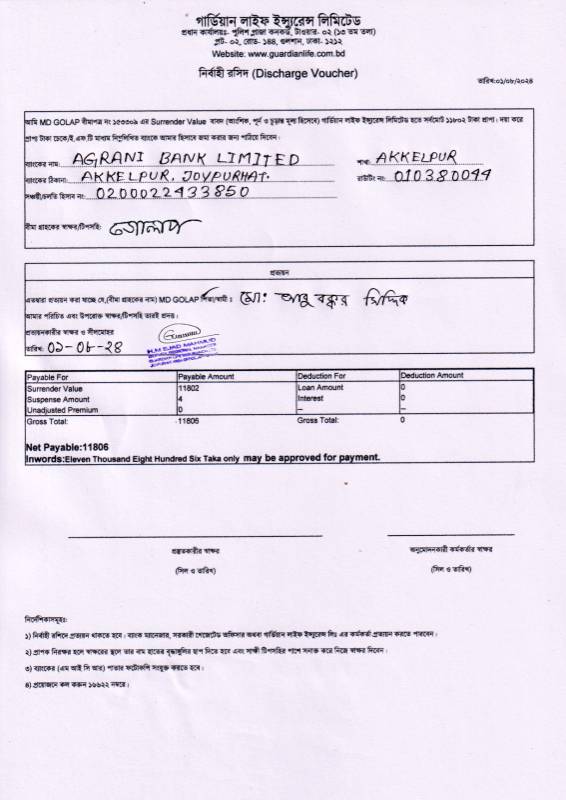 গার্ডিয়ান লাইফ ইন্স্যুরেন্স লিমিটেড
প্রধান কার্যালয়ঃ- পুলিশ প্লাজা কনকর্ড, টাওয়ার- ০২ (১৩ তম তলা)
প্লট- ০২, রোড- ১৪৪, গুলশান, ঢাকা- ১২১২
Website: www.guardianlife.com.bd
নির্বাহী রসিদ (Discharge Voucher)
তারিখ:০১/০৮/২০২৪
আমি MD GOLAP বীমাপত্র নং এর Surrender Value বাবদ (আংশিক, পূর্ন ও চুড়ান্ত মূল্য হিসেবে) গার্ডিয়ান লাইফ ইন্স্যুরেন্স লিমিটেড হতে সর্বমোট ১১৮০২ টাকা প্রাপ্য। দয়া করে
প্রাপ্য টাকা চেকে/ই.এফ.টি মাধ্যম নিম্নলিখিত ব্যাংকে আমার হিসাবে জমা করার জন্য পাঠিয়ে দিবেন।
ব্যাংকের নাম: AGRANI BANK LIMITED শাখা: AKKELPUR
ব্যাংকের ঠিকানা: AKKELPUR, JOYPURHAT. রাউটিং নং: 010380044
সঞ্চয়ী/চলতি হিসাব নং: 0200022433850
বীমা গ্রাহকের স্বাক্ষর/টিপসহি: গোলাপ
প্রত্যয়ন
এতদ্বারা প্রত্যয়ন করা যাচ্ছে যে,(বীমা গ্রাহকের নাম) MD GOLAP পিতা/স্বামী : মো: আবু বক্কর সিদ্দিক
আমার পরিচিত এবং উপরোক্ত স্বাক্ষর/টিপসহি তারই প্রদত্ত।
প্রত্যয়নকারীর স্বাক্ষর ও সীলমোহর
তারিখ: ০১-০৮-২৪
Payable For Payable Amount Deduction For Deduction Amount
Surrender Value 11802 Loan Amount 0
Suspense Amount 4 Interest 0
Unadjusted Premium 0 -- --
Gross Total: 11806 Gross Total: 0
Net Payable:11806
Inwords:Eleven Thousand Eight Hundred Six Taka only may be approved for payment.
প্রস্তুতকারীর স্বাক্ষর অনুমোদনকারী কর্মকর্তার স্বাক্ষর
(সিল ও তারিখ) (সিল ও তারিখ)
নির্দেশিকাসমূহঃ
১) নির্বাহী রশিদে প্রত্যয়ন থাকতে হবে। ব্যাংক ম্যানেজার, সরকারী গেজেটেড অফিসার অথবা গার্ডিয়ান লাইফ ইন্স্যুরেন্স লিঃ এর কর্মকর্তা প্রত্যয়ন করতে পারবেন।
২) প্রাপক নিরক্ষর হলে স্বাক্ষরের স্থলে তার বাম হাতের বৃদ্ধাঙ্গুলির ছাপ দিতে হবে এবং সাক্ষী টিপসহির পাশে সনাক্ত করে নিজে স্বাক্ষর দিবেন।
৩) ব্যাংকের (এম আই সি আর) পাতার ফটোকপি সংযুক্ত করতে হবে।
৪) প্রয়োজনে কল করুন ১৬৬২২ নম্বরে।